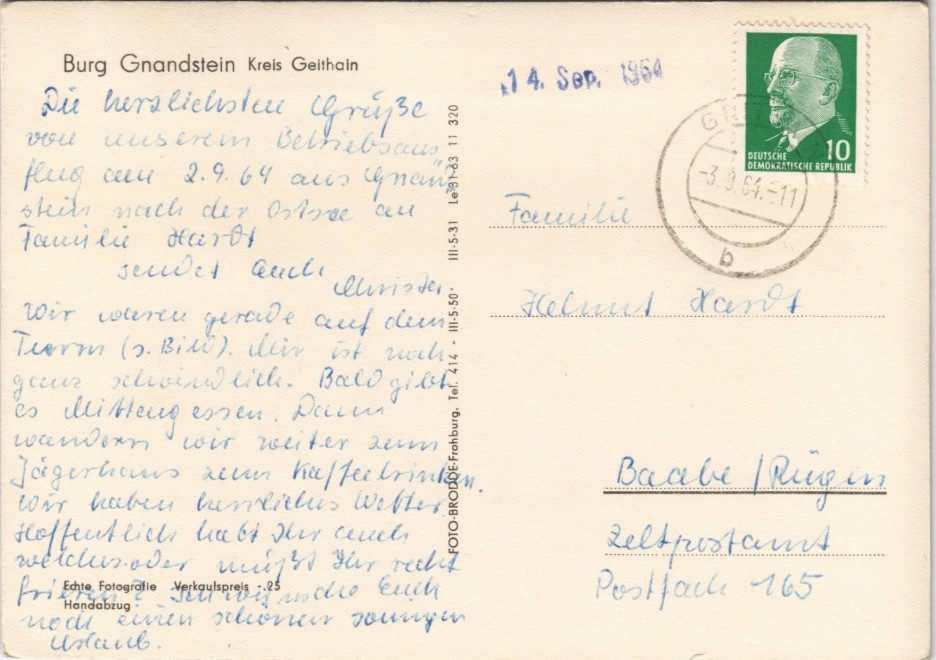 Burg Gnandstein Kreis Geithain
Die herzlichsten Grüße
von unserem Betriebsaus-
flug am 2.9.64 aus Gnand-
stein nach der Ostsee an
Familie Hardt
sendet Euch
Christa.
Wir waren gerade auf dem
Turm (s. Bild). Mir ist noch
ganz schwindlich. Bald gibt
es Mittagessen. Dann
wandern wir weiter zum
Jägerhaus zum Kaffeetrinken.
Wir haben herrliches Wetter.
Hoffentlich habt Ihr auch
welches oder müßt Ihr recht
frieren? Ich wünsche Euch
noch einen schönen sonnigen
Urlaub.
Echte Fotografie Verkaufspreis -.25
Handabzug
FOTO-BRODDE-Frohburg, Tel. 414 - III-5-50- III-5-31 Le 31 63 11 320
14. Sep. 1964
DEUTSCHE
DEMOKRATISCHE REPUBLIK 10
-3.9.64.-11
b
Familie
Helmut Hardt
Baabe/Rügen
Zeltpostamt
Postfach 165